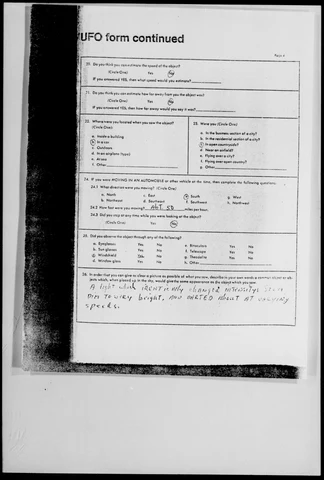 UFO form continued
20. Do you think you can estimate the speed of the object?
(Circle One) Yes No
IF you answered YES, then what speed would you estimate?
21. Do you think you can estimate how far away from you the object was?
(Circle One) Yes No
IF you answered YES, then how far away would you say it was?
22. Where were you located when you saw the object?
(Circle One)
a. Inside a building
b. In a car
c. Outdoors
d. In an airplane (type)
e. At sea
f. Other
23. Were you (Circle One)
a. In the business section of a city?
b. In the residential section of a city?
c. In open countryside?
d. Near an airfield?
e. Flying over a city?
f. Flying over open country?
g. Other
24. IF you were MOVING IN AN AUTOMOBILE or other vehicle at the time, then complete the following questions:
24.1 What direction were you moving? (Circle One)
a. North c. East e. South g. West
b. Northeast d. Southeast f. Southwest h. Northwest
24.2 How fast were you moving? ABT 50 miles per hour.
24.3 Did you stop at any time while you were looking at the object?
(Circle One) Yes No
25. Did you observe the object through any of the following?
a. Eyeglasses Yes No e. Binoculars Yes No
b. Sun glasses Yes No f. Telescope Yes No
c. Windshield Yes No g. Theodolite Yes No
d. Window glass Yes No h. Other
26. In order that you can give as clear a picture as possible of what you saw, describe in your own words a common object or objects which, when placed up in the sky, would give the same appearance as the object which you saw.
A light which changed intensity from
DIM TO VERY bright, AND DARTED About AT VARYING
speeds.